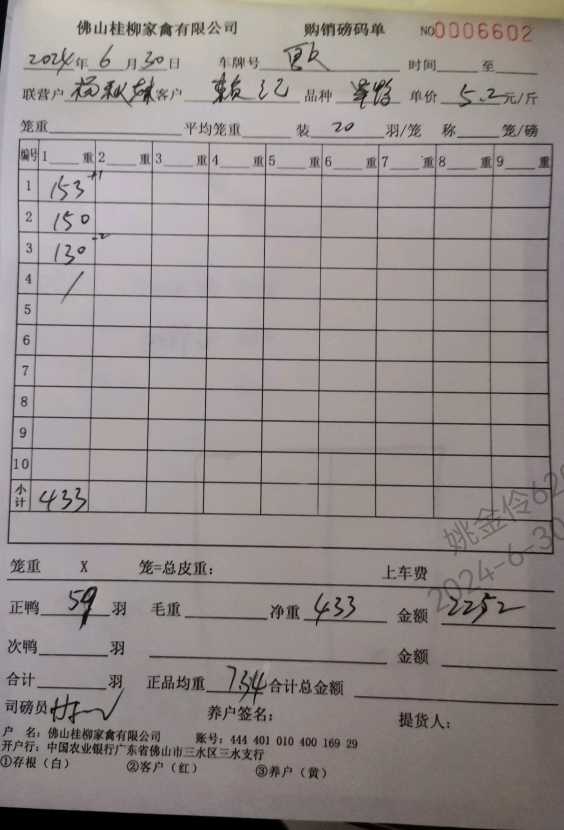 佛山桂柳家禽有限公司 购销磅码单 NO0006602
2024年6月30日 车牌号 时间 至
联营户 客户 赖记 品种 单价 5.2元/斤
笼重 平均笼重 装 20 羽/笼 称 笼/磅
编号 1 重 2 重 3 重 4 重 5 重 6 重 7 重 8 重 9 重
1 153 +1
2 150
3 130 -2
4 /
5
6
7
8
9
10
小计 433
笼重 X 笼=总皮重: 上车费
正鸭 59 羽 毛重 净重 433 金额 2252
次鸭 羽 金额
合计 羽 正品均重 7.34 合计总金额
司磅员 养户签名: 提货人:
户 名: 佛山桂柳家禽有限公司 账号: 444 401 010 400 169 29
开户行: 中国农业银行广东省佛山市三水区三水支行
①存根(白) ②客户(红) ③养户(黄)
姚金伶620
2024-6-30